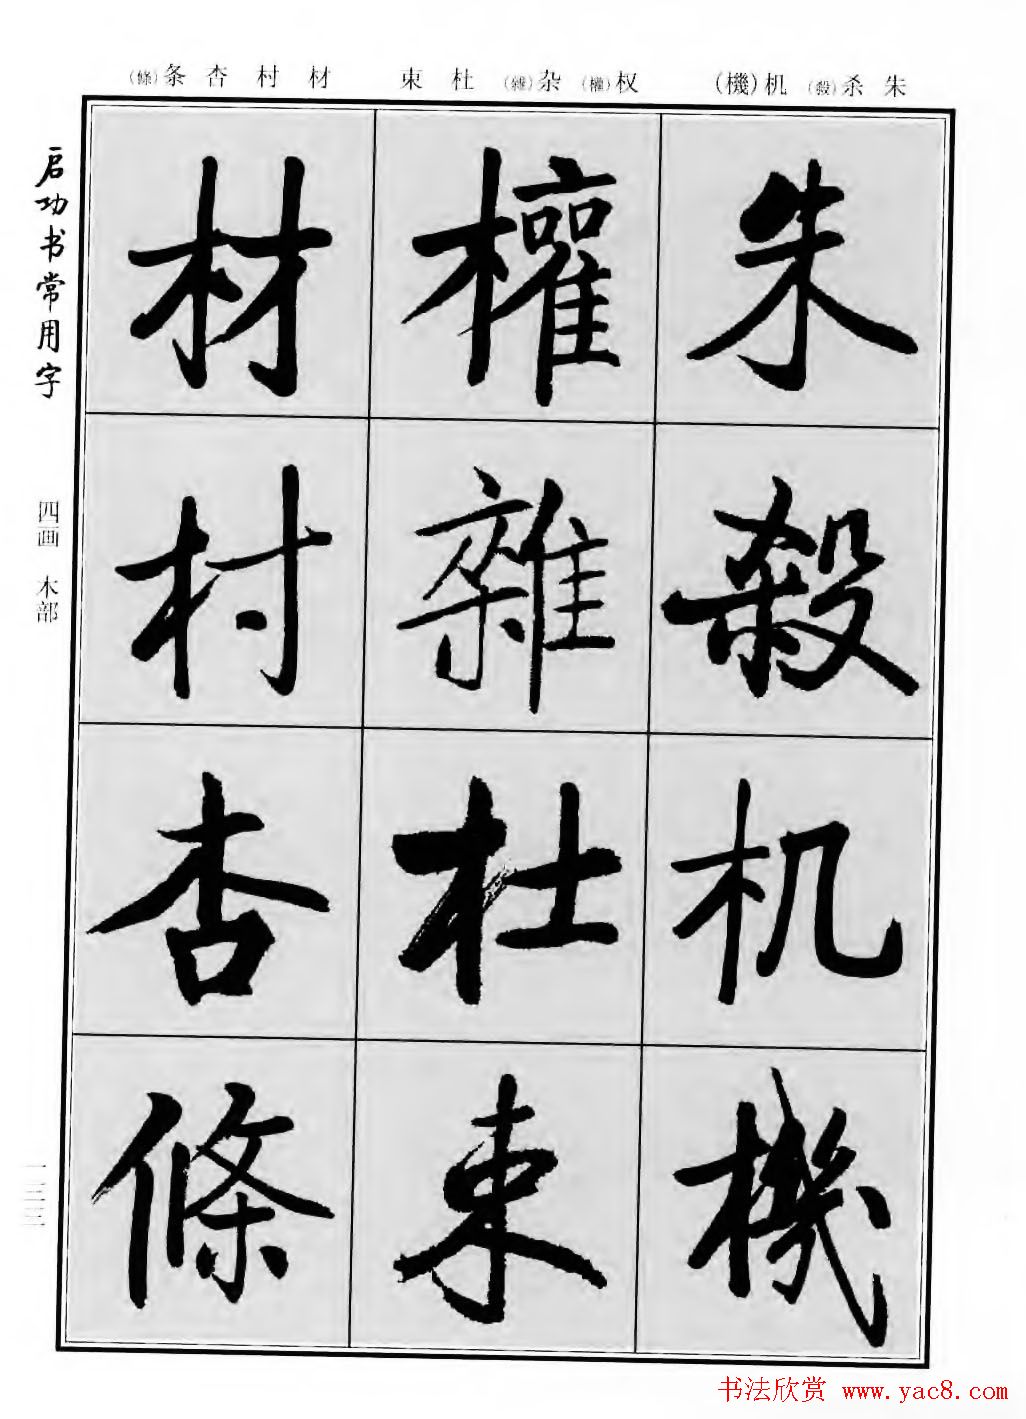 朱 杀(殺) 机(機) 权(權) 杂(雜) 杜 束 材 村 杏 条(條)
启功书常用字
四画 木部
朱
殺
机
機
權
雜
杜
束
材
村
杏
條
一三三
书法欣赏 www.yac8.com